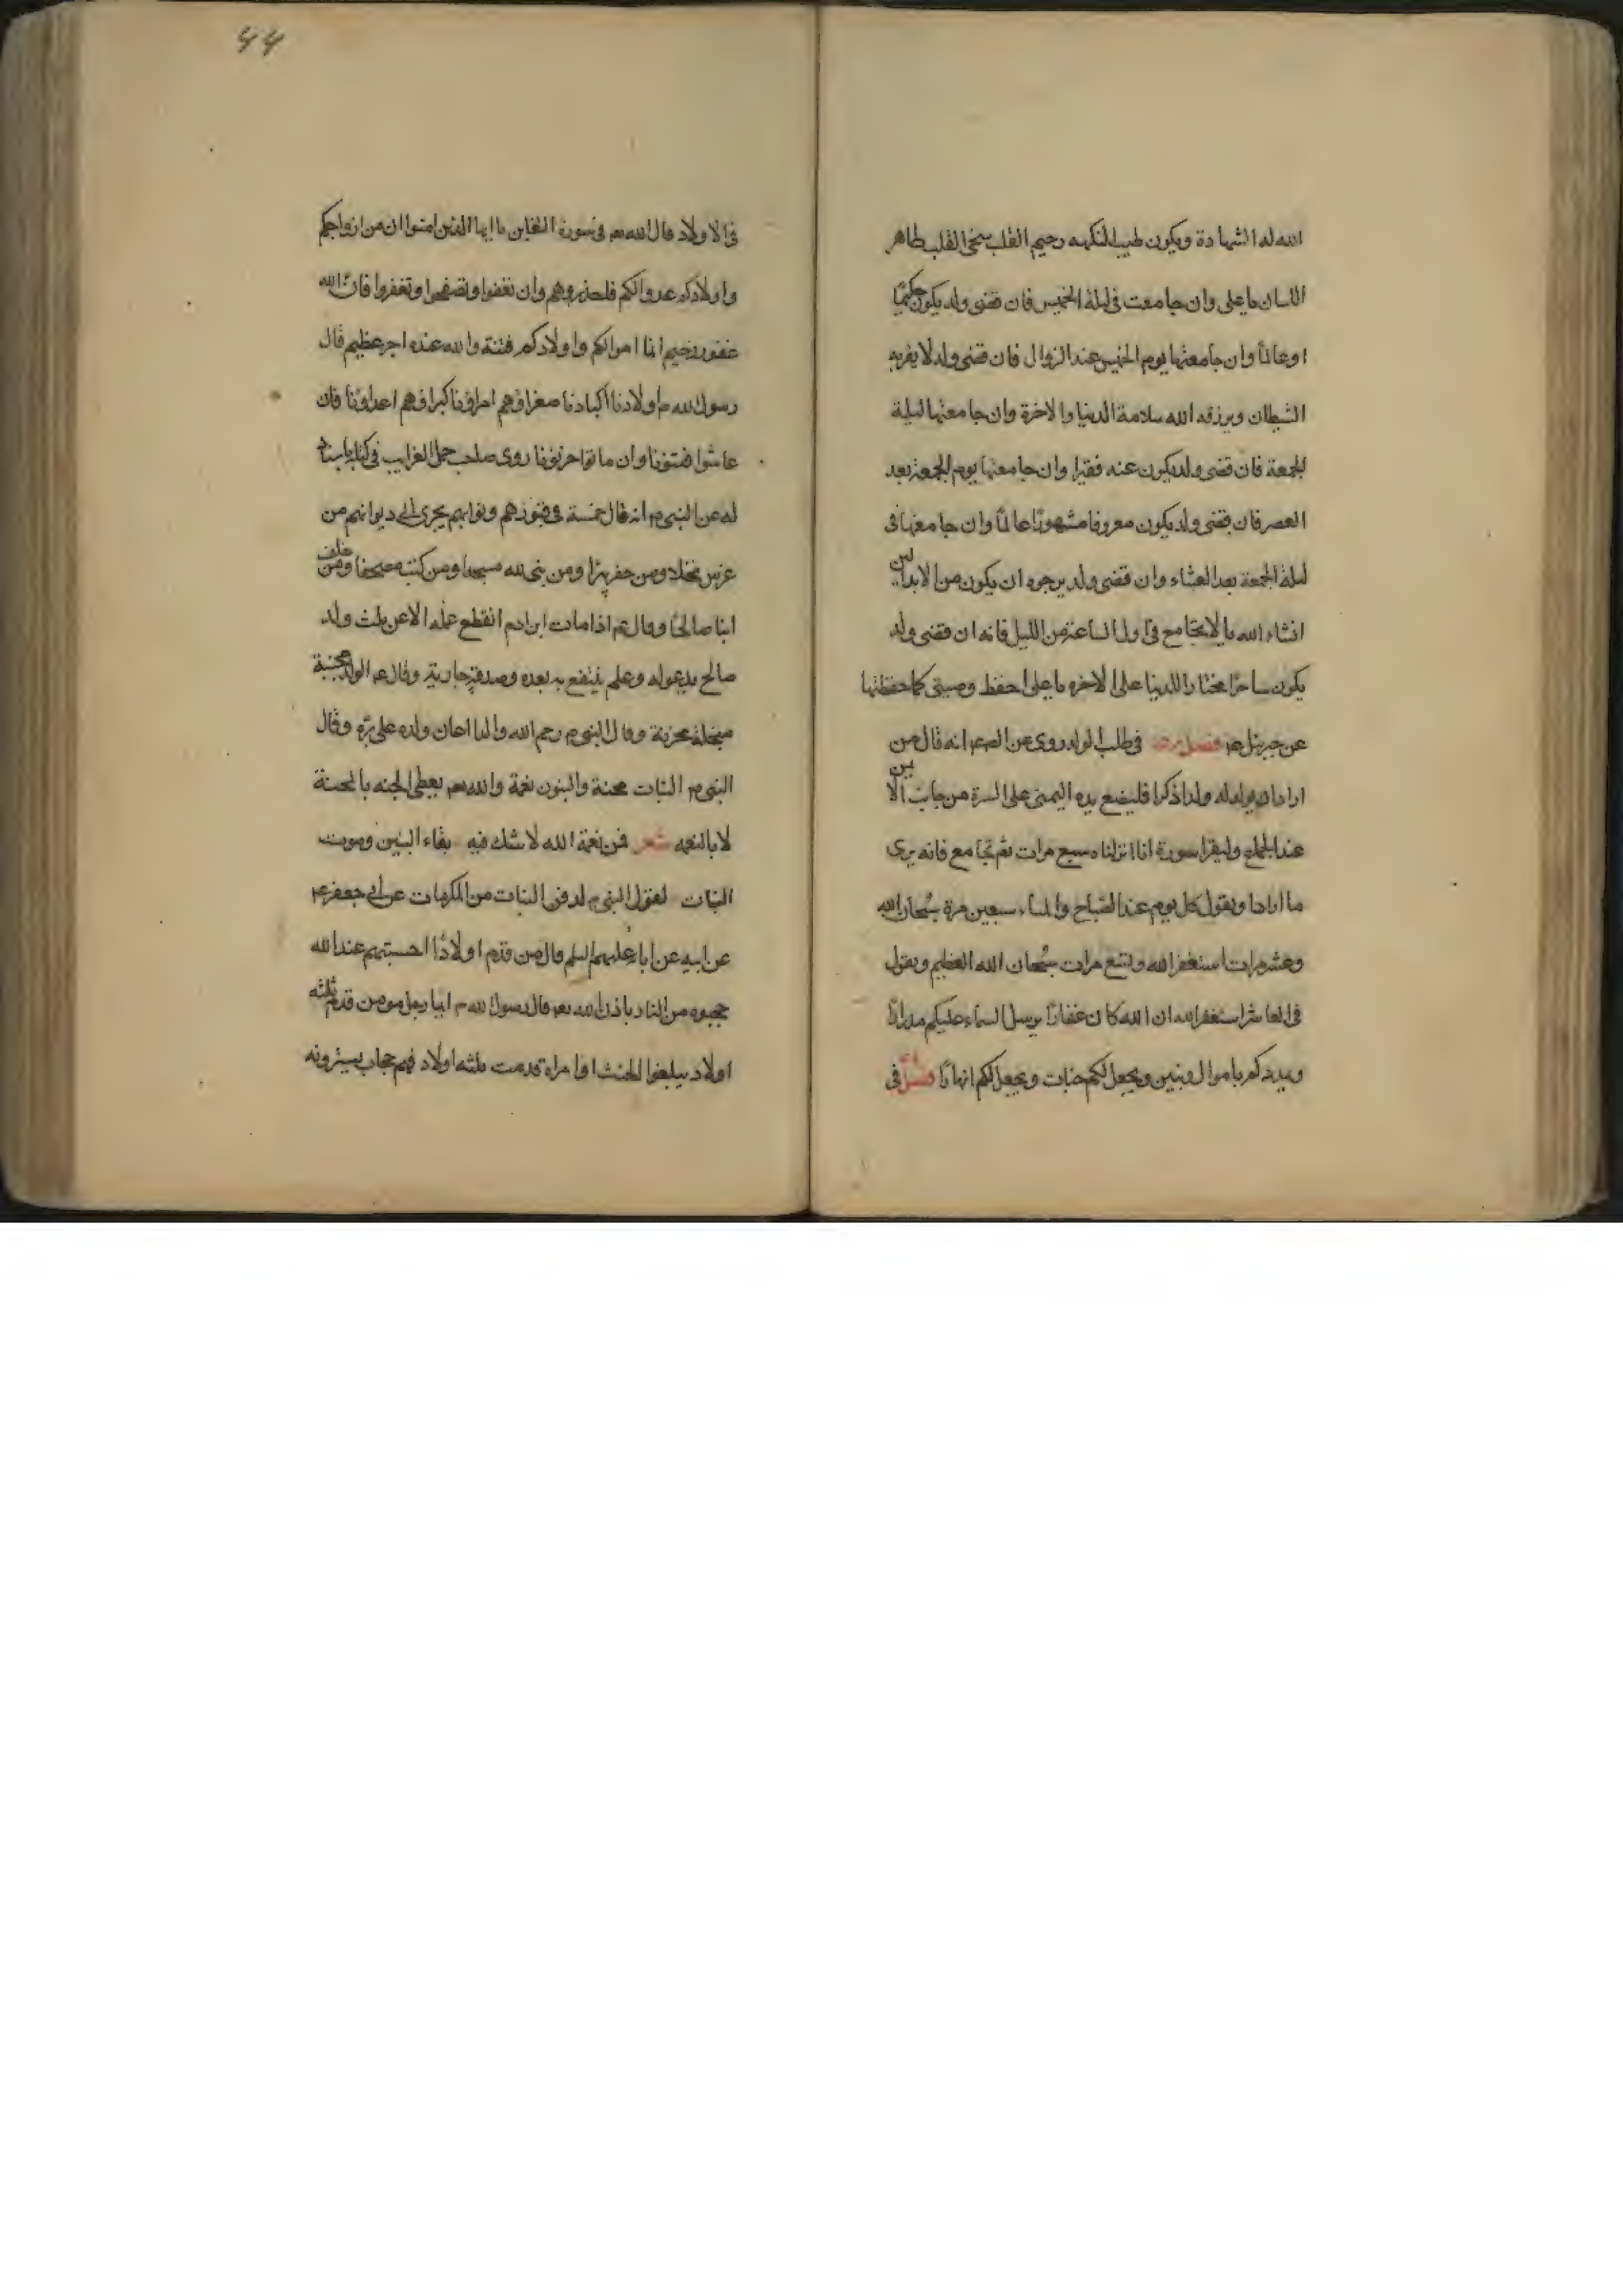 الله له الشهادة ويكون طيب النكهه رحيم القلب سخى القلب طاهر
اللسان يا على وان جامعت فى ليلة الخميس فان قضى ولد يكون حكيمًا
او عالمًا وان جامعتها يوم الخميس عند الزوال فان قضى ولد لا يقربه
الشيطان ويرزقه الله سلامة الدنيا والاخرة وان جامعتها ليلة
الجمعة فان قضى ولد يكون عنه فقيرا وان جامعتها يوم الجمعة بعد
العصر فان يقضى ولد يكون معروفا مشهورًا عالمًا وان جامعتها فى
ليلة الجمعة بعد العشاء وان قضى ولد يرجوه ان يكون من الابدالين
انشاء الله يا لا تجامع فى اول الساعة من الليل فانه ان قضى ولد
يكون ساحرًا مختارا للدينا على الاخره يا على احفظ وصيتى كما حفظتها
عن جبرئيل عم فصل فى طلب الولد روى عن انه قال من
اراد ان يولد له ولدا ذكرا فليضع يده اليمنى على السرة من جانب الايمن
عند الجماع وليقرا سورة انا انزلناه سبع مرات ثم يجامع فانه يرى
ما اراد او يقول كل يوم عند الصباح والمساء سبعين مرة سبحان الله
وعشر مرات استغفر الله وتسع مرات سبحان الله العظيم ويقول
فى العاشرا ستغفر الله ان الله كان غفارًا يرسل السماء عليكم مدرارًا
ويمددكم باموال وبنين ويجعل لكم جنات ويجعل لكم انهارًا فصل فى
٤٤
فى الاولاد قال الله تعم فى سورة التغابن يا ايها الذين امنوا ان من ازواجكم
واولادكم عدوا لكم فاحذروهم وان تعفوا وتصفحوا وتغفروا فان الله
غفور رحيم انما اموالكم واولادكم فتنة والله عنده اجر عظيم قال
رسول الله ص اولادنا اكبادنا صغراؤهم امراؤنا كبراؤهم اعداؤنا فان
عاشوا فتنونا وان ماتوا احزنونا روى صاحب الغرايب فى كتابه باسناد
له عن النبى ص انه قال خمسة فى قبورهم وثوابهم يجرى الى ديوانهم من
غرس نخلا ومن حفر بئرًا ومن بنى لله مسجدا ومن كتب مصحفا ومن خلف
ابنا صالحًا وقال عم اذا مات ابن ادم انقطع عمله الا عن ثلث ولد
صالح يدعوله وعلم ينتفع به بعده وصدقة جارية وقال عم الولد مجبنة
مبخلة محزنة وقال النبى ص رحم الله والدا اعان ولده على بره وقال
النبى ص البنات محنة والبنون نعمة والله تعم يعطى الجنه بالمحنة
لا بالنعمه شعر فمن نعمة الله لا شك فيه بقاء البنين وموت
البنات لقول النبى ص لدفن البنات من المكرمات عن ابى جعفر عم
عن ابيه عن ابائه عليهم السلم قال من قدم اولادًا احتسبهم عند الله
حجبوه من النار باذن الله تعم قال رسول الله ص ايما رجل مومن قدم ثلثه
اولاد يبلغوا الحنث او امراة قدمت ثلثه اولاد فهم حجاب يسترونه